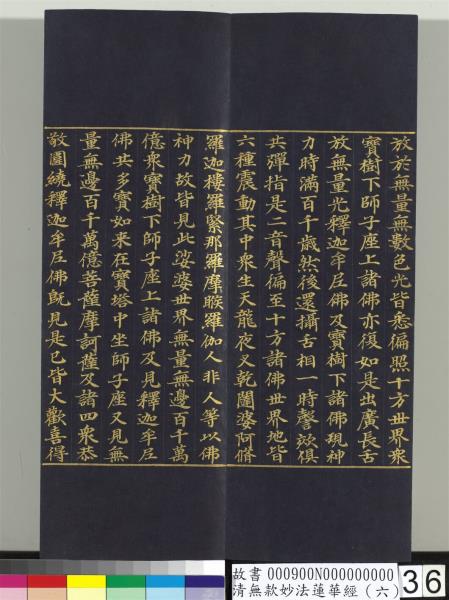 放於無量無數色光皆悉徧照十方世界衆
寶樹下師子座上諸佛亦復如是出廣長舌
放無量光釋迦牟尼佛及寶樹下諸佛現神
力時滿百千歲然後還攝舌相一時謦欬俱
共彈指是二音聲徧至十方諸佛世界地皆
六種震動其中衆生天龍夜叉乾闥婆阿脩
羅迦樓羅緊那羅摩睺羅伽人非人等以佛
神力故皆見此娑婆世界無量無邊百千萬
億衆寶樹下師子座上諸佛及見釋迦牟尼
佛共多寶如來在寶塔中坐師子座又見無
量無邊百千萬億菩薩摩訶薩及諸四衆恭
敬圍繞釋迦牟尼佛既見是已皆大歡喜得
故書 000900N000000000
清無款妙法蓮華經（六）
36